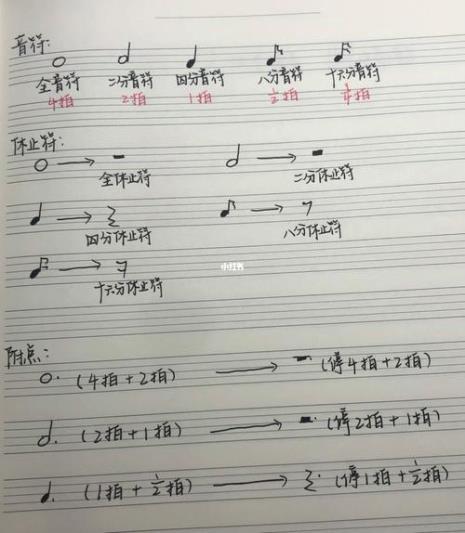 音符:
全音符 二分音符 四分音符 八分音符 十六分音符
4拍 2拍 1拍 1/2拍 1/4拍
休止符:
全休止符 二分休止符
四分休止符 八分休止符
小红书
十六分休止符
附点:
(4拍+2拍) (停4拍+2拍)
(2拍+1拍) (停2拍+1拍)
(1拍+1/2拍) (停1拍+1/2拍)